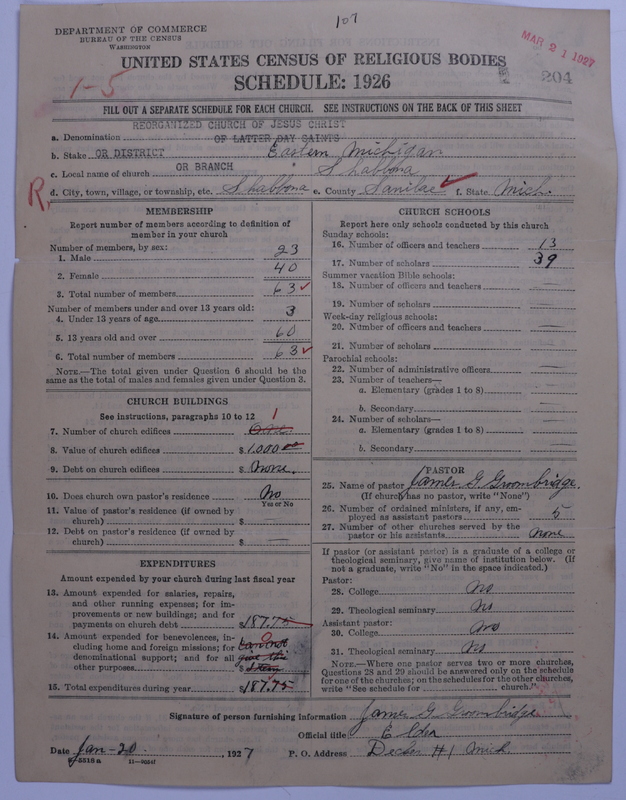 107
DEPARTMENT OF COMMERCE
BUREAU OF THE CENSUS
WASHINGTON
MAR 21 1927
UNITED STATES CENSUS OF RELIGIOUS BODIES
204
1-5
SCHEDULE: 1926
FILL OUT A SEPARATE SCHEDULE FOR EACH CHURCH. SEE INSTRUCTIONS ON THE BACK OF THIS SHEET
REORGANIZED CHURCH OF JESUS CHRIST
a. Denomination OF LATTER DAY SAINTS
b. Stake OR DISTRICT Eastern Michigan
c. Local name of church OR BRANCH Shabbona
R. d. City, town, village, or township, etc. Shabbona e. County Sanilac f. State Mich.
MEMBERSHIP
Report number of members according to definition of
member in your church
Number of members, by sex:
1. Male 23
2. Female 40
3. Total number of members 63
Number of members under and over 13 years old:
4. Under 13 years of age 3
5. 13 years old and over 60
6. Total number of members 63
NOTE.—The total given under Question 6 should be the
same as the total of males and females given under Question 3.
CHURCH BUILDINGS
See instructions, paragraphs 10 to 12 1
7. Number of church edifices One
8. Value of church edifices $1000 00
9. Debt on church edifices $ None.
10. Does church own pastor's residence No
Yes or No
11. Value of pastor's residence (if owned by
church) $
12. Debt on pastor's residence (if owned by
church) $
EXPENDITURES
Amount expended by your church during last fiscal year
13. Amount expended for salaries, repairs,
and other running expenses; for im-
provements or new buildings; and for
payments on church debt $187.75
14. Amount expended for benevolences, in- 0
cluding home and foreign missions; for can not
denominational support; and for all give this
other purposes $
15. Total expenditures during year $187.75
CHURCH SCHOOLS
Report here only schools conducted by this church
Sunday schools:
16. Number of officers and teachers 13
17. Number of scholars 39
Summer vacation Bible schools:
18. Number of officers and teachers
19. Number of scholars
Week-day religious schools:
20. Number of officers and teachers
21. Number of scholars
Parochial schools:
22. Number of administrative officers
23. Number of teachers—
a. Elementary (grades 1 to 8)
b. Secondary
24. Number of scholars—
a. Elementary (grades 1 to 8)
b. Secondary
PASTOR
25. Name of pastor James G Groombridge.
(If church has no pastor, write "None")
26. Number of ordained ministers, if any, em-
ployed as assistant pastors 5
27. Number of other churches served by the
pastor or his assistants none
If pastor (or assistant pastor) is a graduate of a college or
theological seminary, give name of institution below. (If
not a graduate, write "No" in the space indicated.)
Pastor:
28. College No
29. Theological seminary No
Assistant pastor:
30. College No
31. Theological seminary No
NOTE.—Where one pastor serves two or more churches,
Questions 28 and 29 should be answered only on the schedule
for one of the churches; on the schedules for the other churches,
write "See schedule for church."
Signature of person furnishing information James G Groombridge
Official title Elder
Date Jan-20. , 1927 P. O. Address Decker #1 Mich.
8-5518a 11-9034